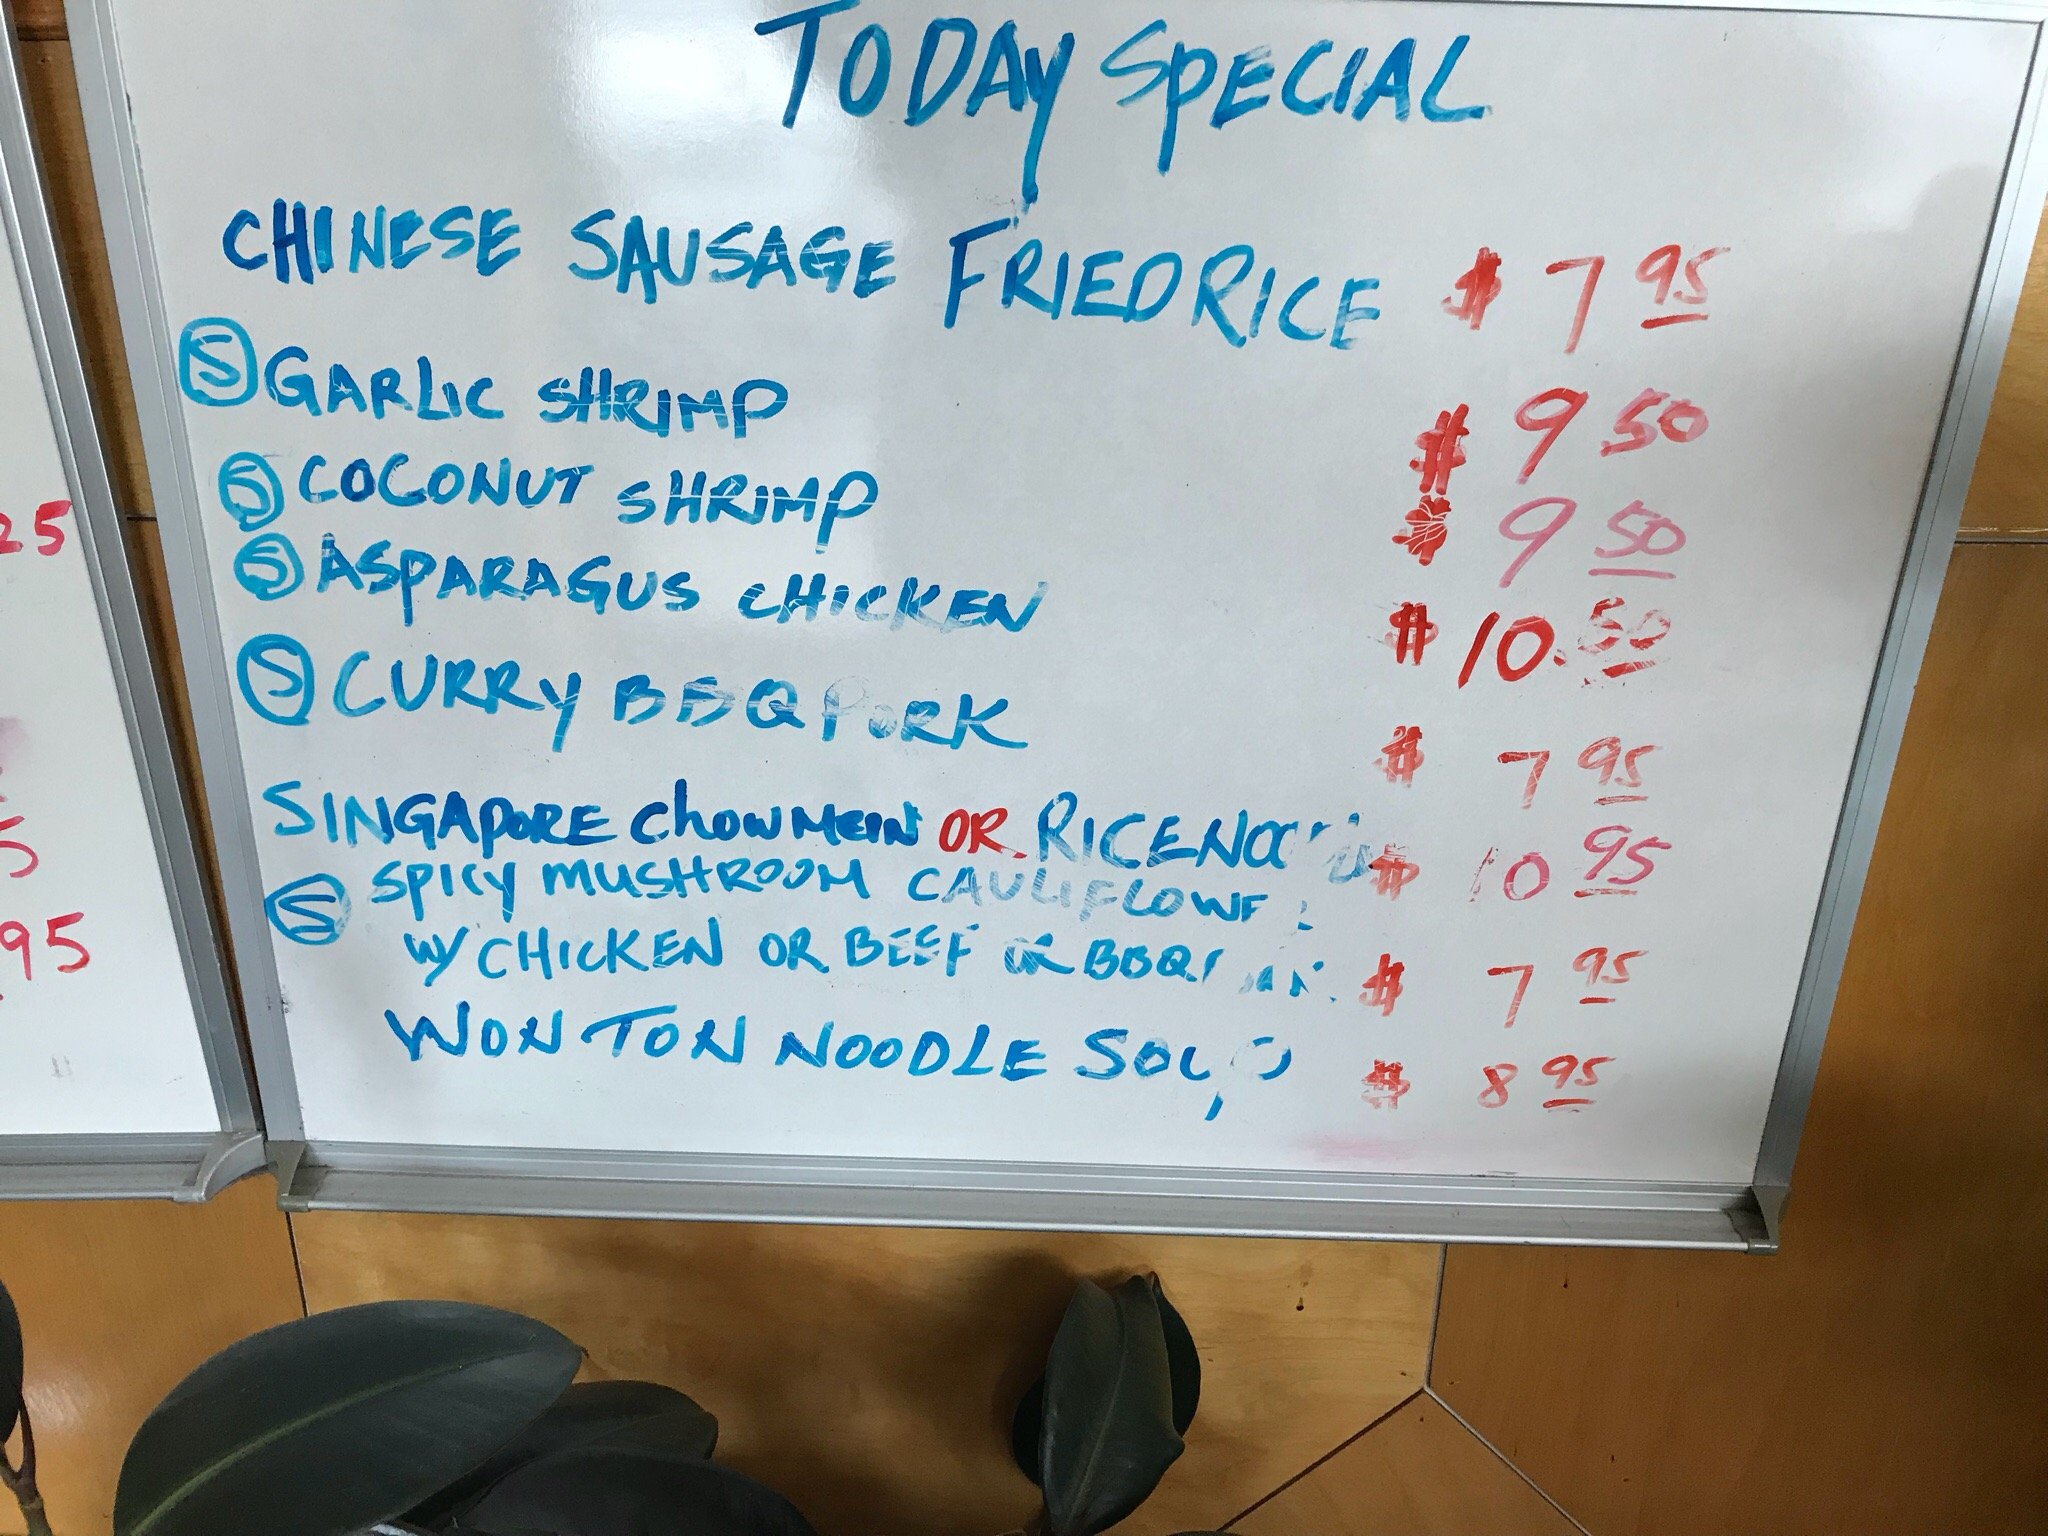 TODAY SPECIAL
CHINESE SAUSAGE FRIED RICE $ 7 95
S GARLIC SHRIMP $ 9 50
S COCONUT SHRIMP $ 9 50
S ASPARAGUS CHICKEN $ 10.50
S CURRY BBQ PORK $ 7 95
SINGAPORE CHOWMEIN OR RICE $ 10 95
S SPICY MUSHROOM CAULIFLOWE
W/ CHICKEN OR BEEF OR BBQ $ 7 95
WON TON NOODLE SOUP $ 8 95
25
5
95